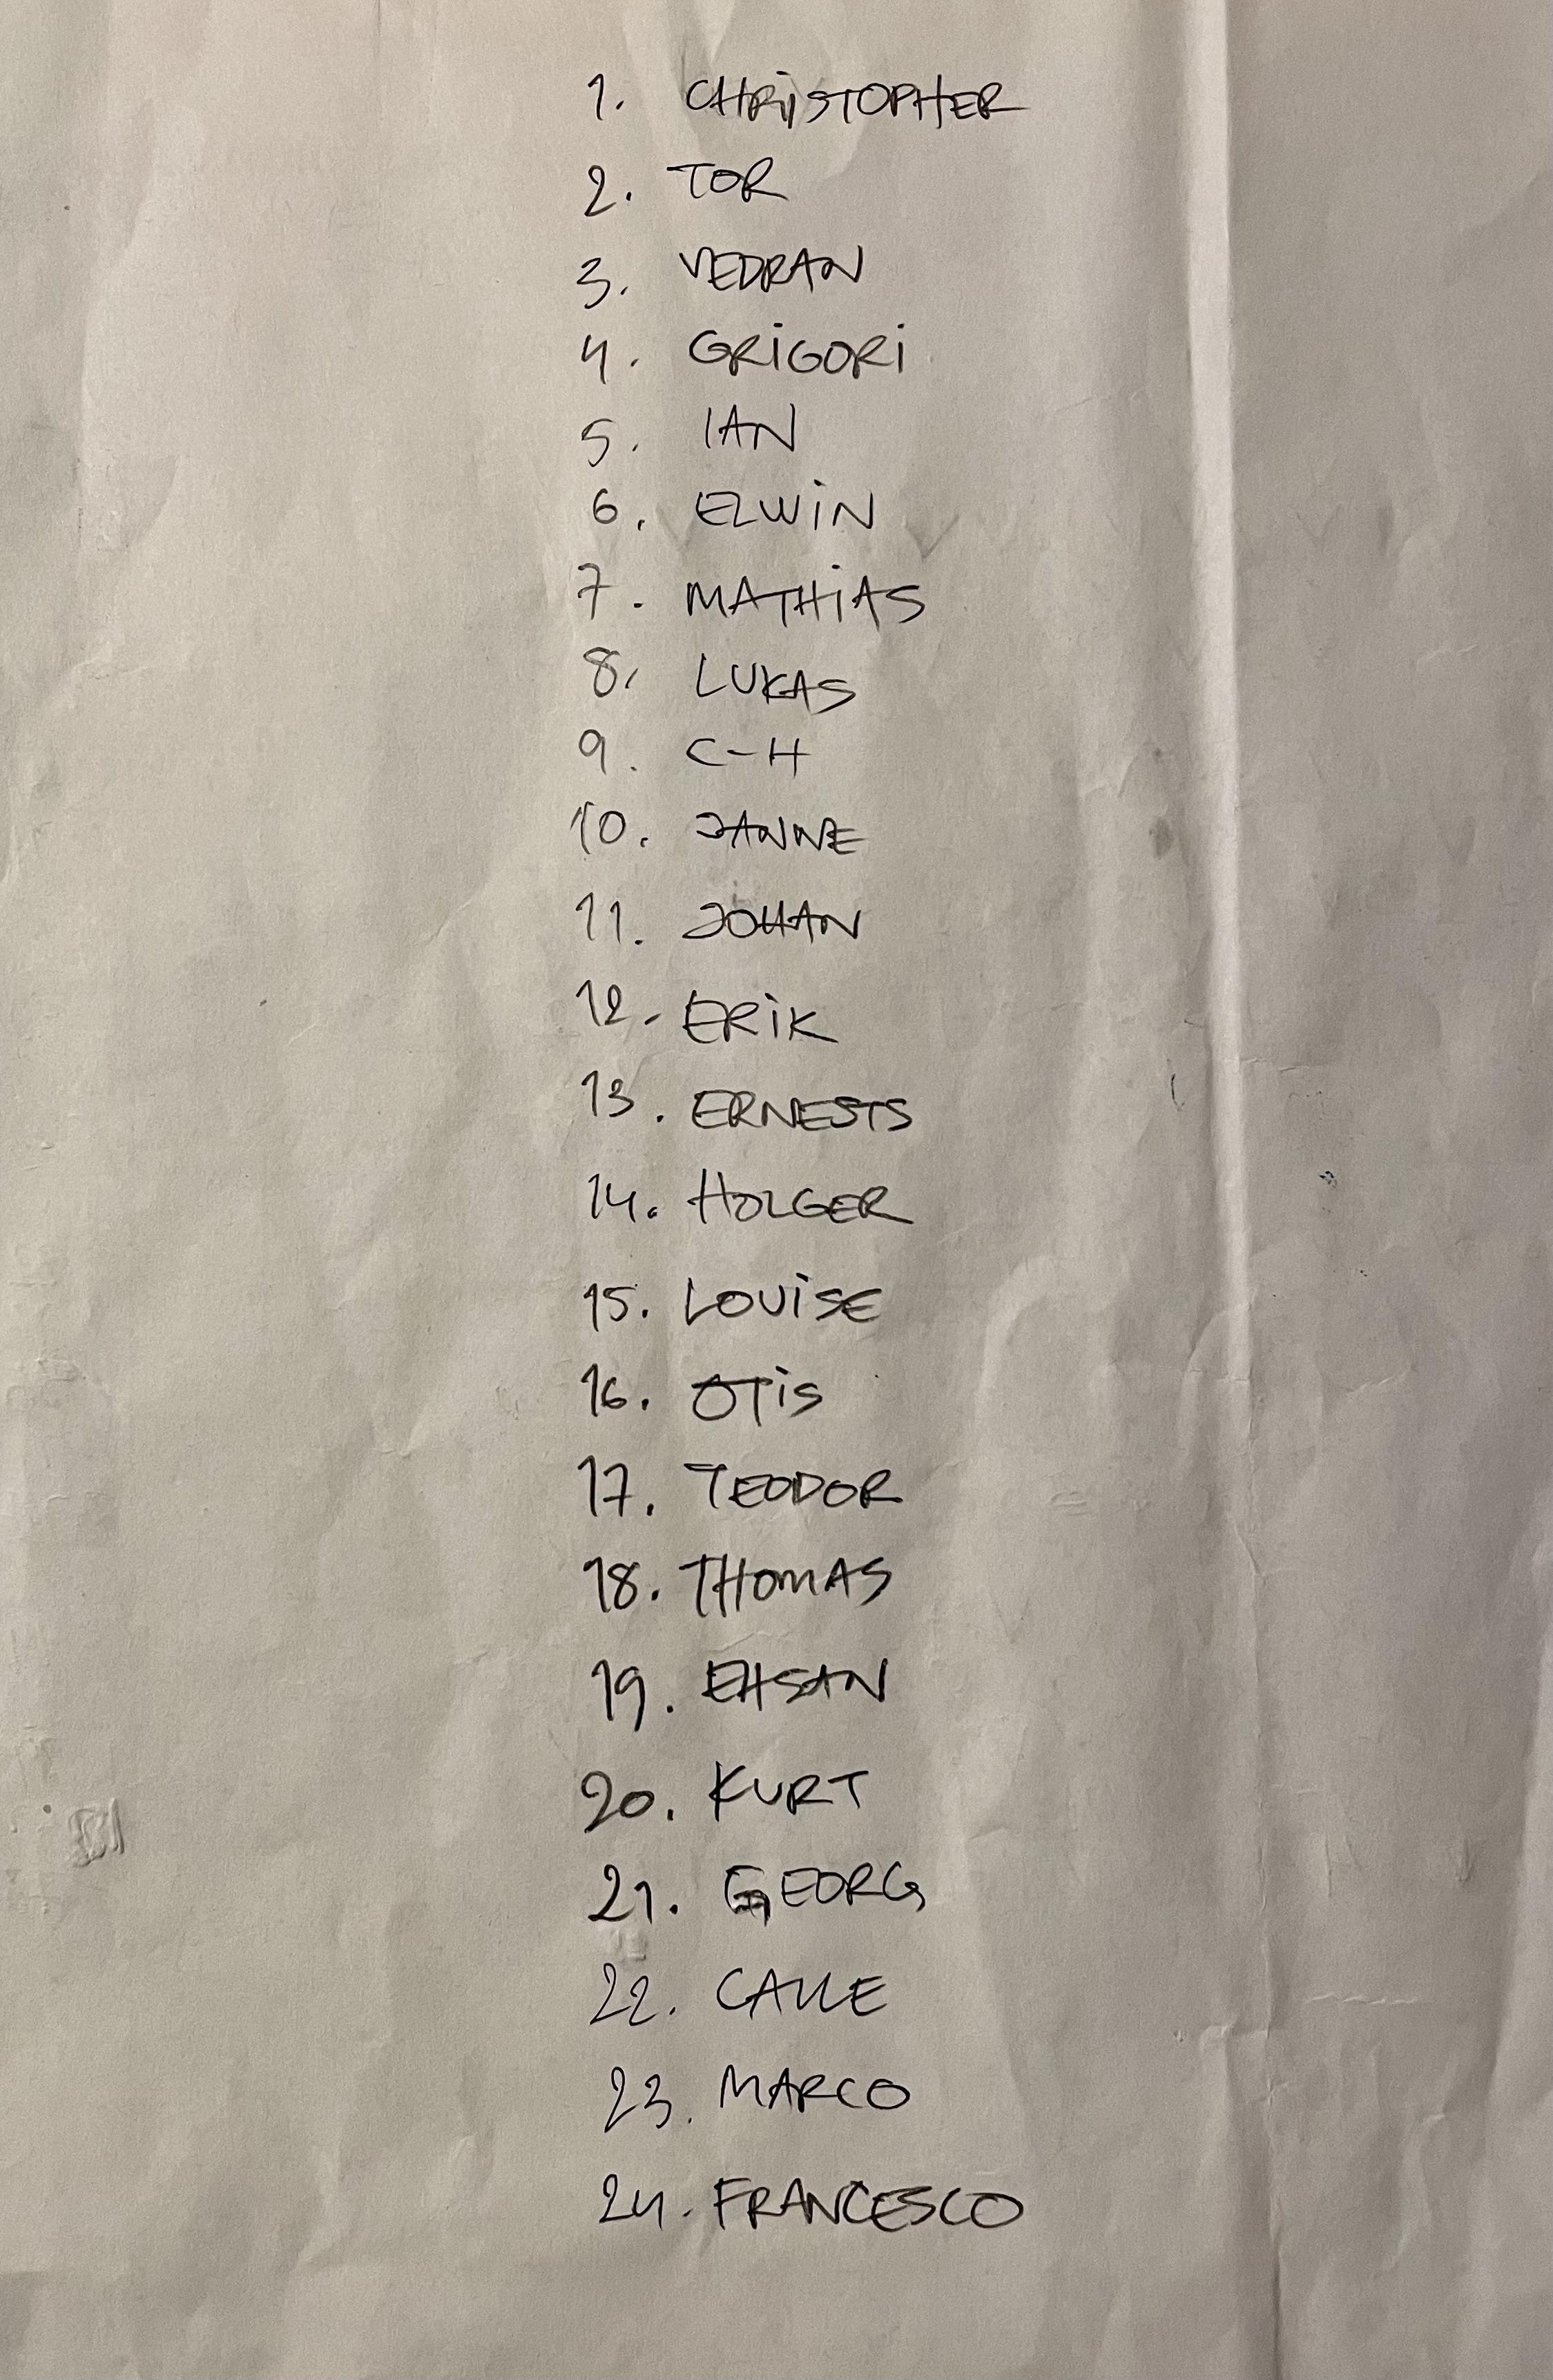 1. CHRiSTOPHER
2. TOR
3. VEDRAN
4. GRiGORi
5. IAN
6. ELWiN
7. MATHiAS
8. LUKAS
9. C-H
10. JANNE
11. JOHAN
12. ERiK
13. ERNESTS
14. HOLGER
15. LOUiSE
16. OTiS
17. TEODOR
18. THOMAS
19. EHSAN
20. KURT
21. GEORG
22. CALLE
23. MARCO
24. FRANCESCO